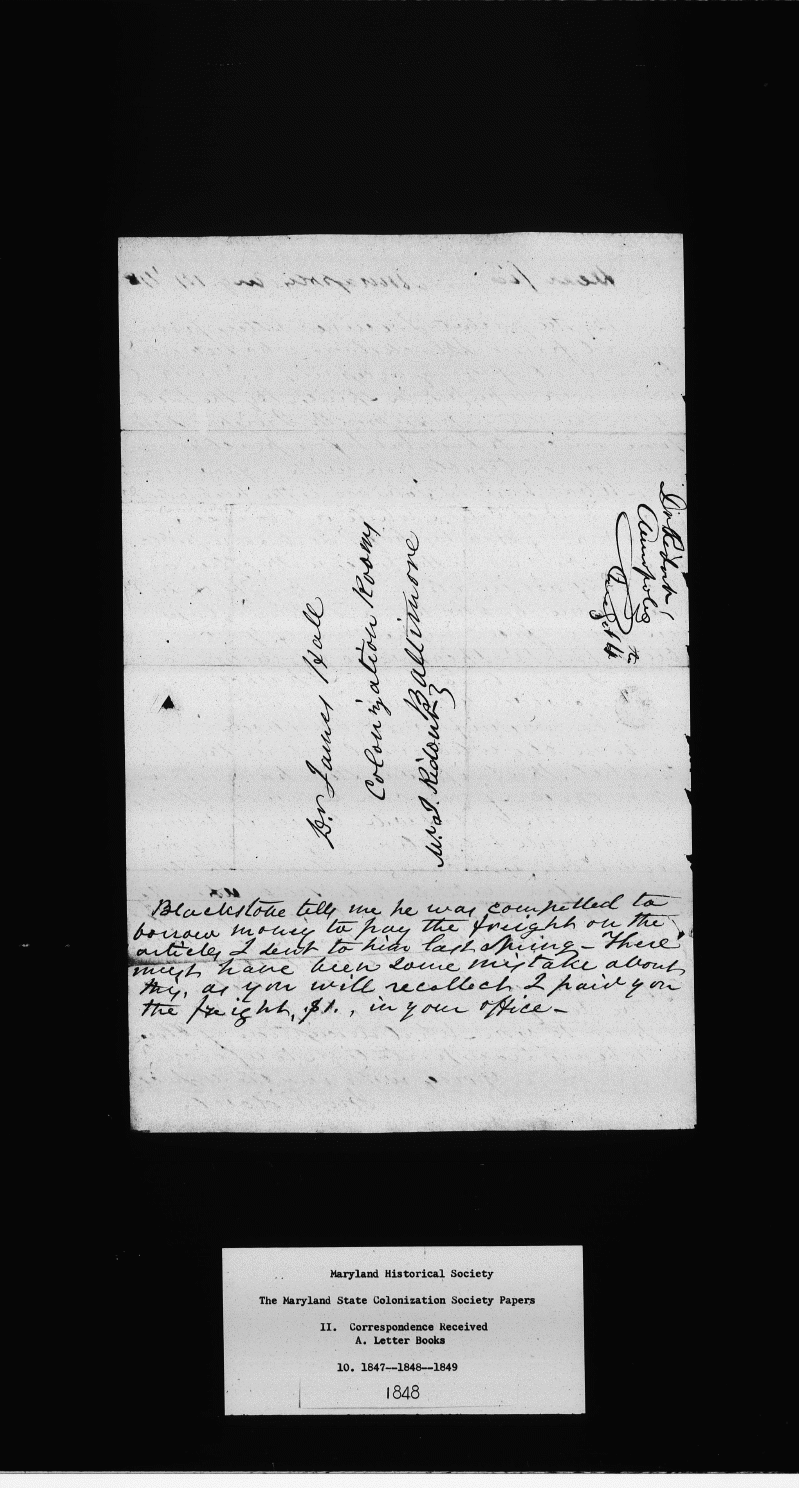 Dr. Ridout,
Annapolis
Aug st 14 th
Dr James Hall
Colonization Rooms
Baltimore
Mr. J. Ridout
Blackstone tells me he was compelled to
borrow money to pay the freight on the
articles I sent to him last Spring - There
must have been some mistake about
this, as you will recollect I paid you
the freight, $1., in your office -
Maryland Historical Society
The Maryland State Colonization Society Papers
II. Correspondence Received
A. Letter Books
10. 1847--1848--1849
1848